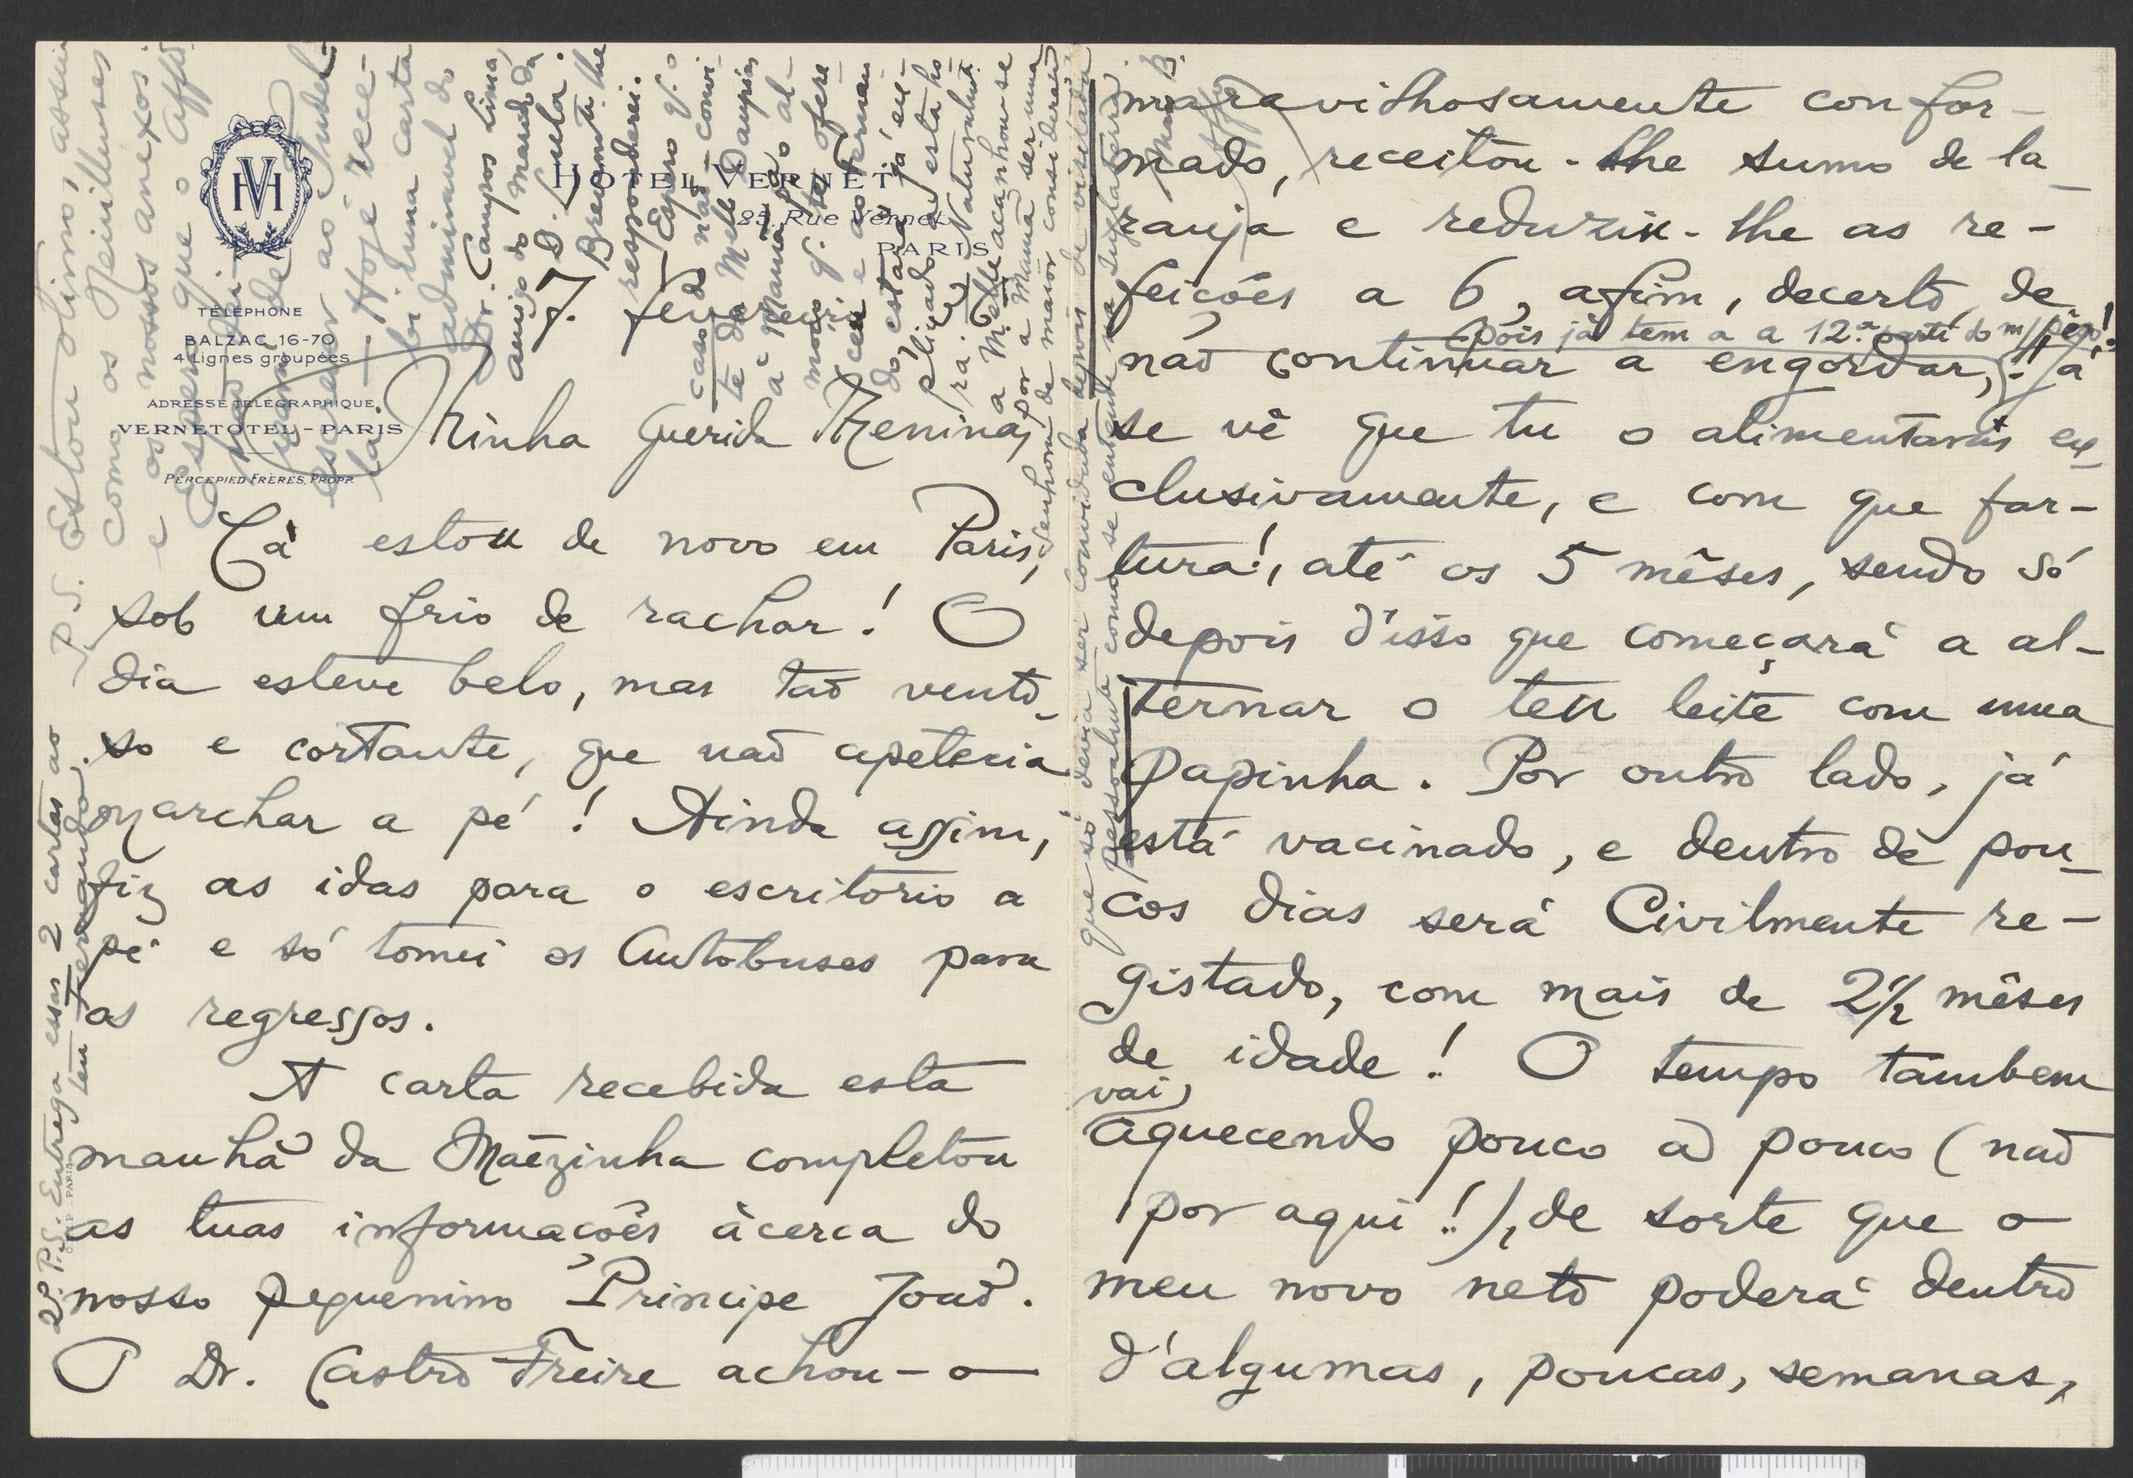 HOTEL VERNET
25, Rue Vernet
PARIS
TÉLÉPHONE
BALZAC 16-70
4 Lignes groupées
ADRESSE TÉLÉGRAPHIQUE
VERNETOTEL-PARIS
PERCEPIED FRÈRES, PROPP.
7. Fevereiro
Minha querida Menina,
Cá estou de novo em Paris,
sob um frio de rachar! O
dia esteve belo, mas tão vento-
so e cortante, que não apetecia
marchar a pé! Ainda assim,
fiz as idas para o escritorio a
pé e só tomei os Autobuses para
os regressos.
A carta recebida esta
manhã da Mãezinha completou
as tuas informações ácerca do
nosso pequenino Principe João.
O Dr. Castro Freire achou-o
maravilhosamente confor-
mado, receitou-lhe sumo de la-
ranja e reduziu-lhe as re-
feições a 6, afim, decerto, de
não continuar a engordar, pois já tem a 12.ª parte do m/ pêso! Já
se vê que tu o alimentarás ex-
clusivamente, e com que far-
tura!, até os 5 mêses, sendo só
depois d'isso que começará a al-
ternar o teu leite com uma
papinha. Por outro lado, já
está vacinado, e dentro de pou-
cos dias será Civilmente re-
gistado, com mais de 2 1/2 mêses
de idade! O tempo tambem
vai aquecendo pouco a pouco (não
por aqui!!), de sorte que o
meu novo neto poderá dentro
d'algumas, poucas, semanas,
P.S. Estou otimo, assim
como os Neuillenses
e os nossos anexos.
Espero que o Affº
não
escrever ao
la. — Hoje rece-
bi uma carta
adminavel do
Dr. Campos Lima,
amigo do marido da
D. Lula.
Brevemte. lhe
responderei.
Espero q.
caso não convi-
te de Melle
á Mamã,
q. te ofere-
estará já ex-
plicado a esta ho-
ra. Naturalmte.
a Melle acanhou-se
por a Mamã ser uma
Senhora de maior consideração
que só devia ser convidada depois de visitada
pessoalmte. como se entende na Inglaterra.
2º P.S. Entrega essas 2 cartas ao
teu Fernando.